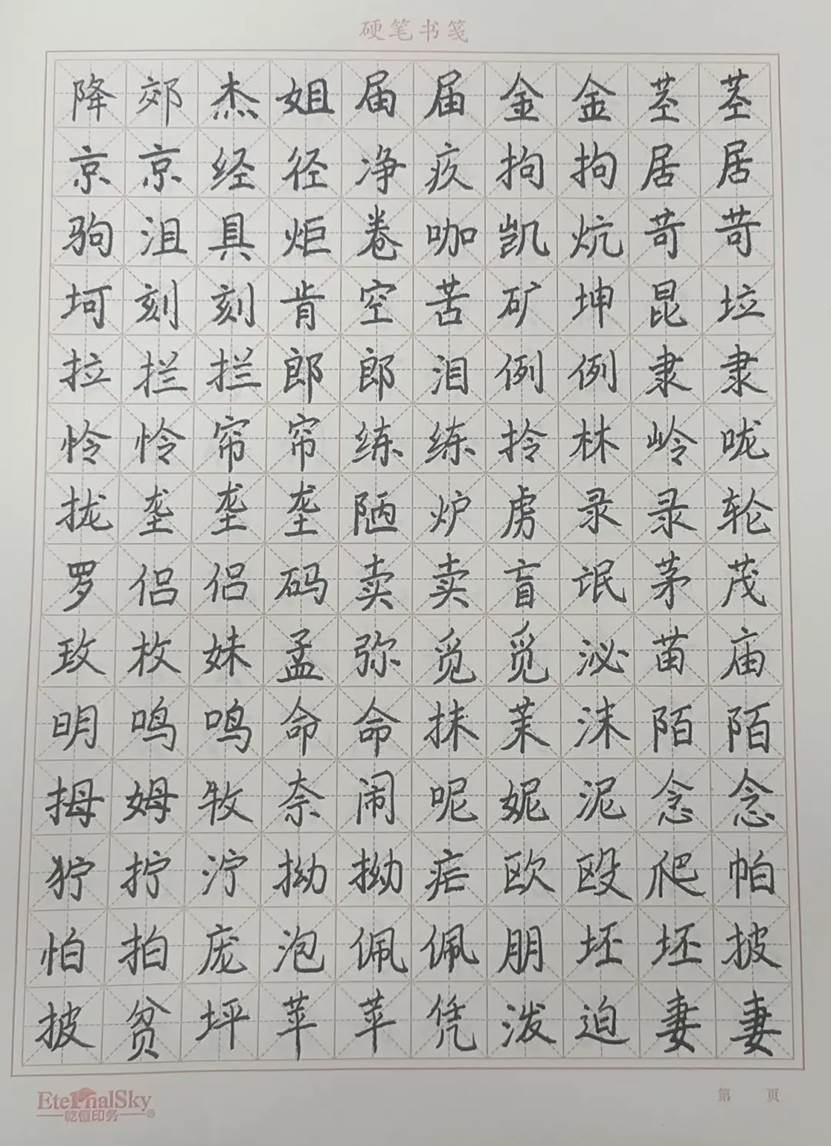 硬笔书笺
降郊杰姐届届金金茎茎
京京经径净疚拘拘居居
驹沮具炬卷咖凯炕苛苛
坷刻刻肯空苦矿坤昆垃
拉拦拦郎郎泪例例隶隶
怜怜帘帘练练拎林岭咙
拢垄垄垄陋炉虏录录轮
罗侣侣码卖卖盲氓茅茂
玫枚妹孟弥觅觅泌苗庙
明鸣鸣命命抹茉沫陌陌
拇姆牧奈闹呢妮泥念念
狞拧泞拗拗疟欧殴爬帕
怕拍庞泡佩佩朋坯坯披
披贫坪苹苹凭泼迫妻妻
EternalSky 第 页